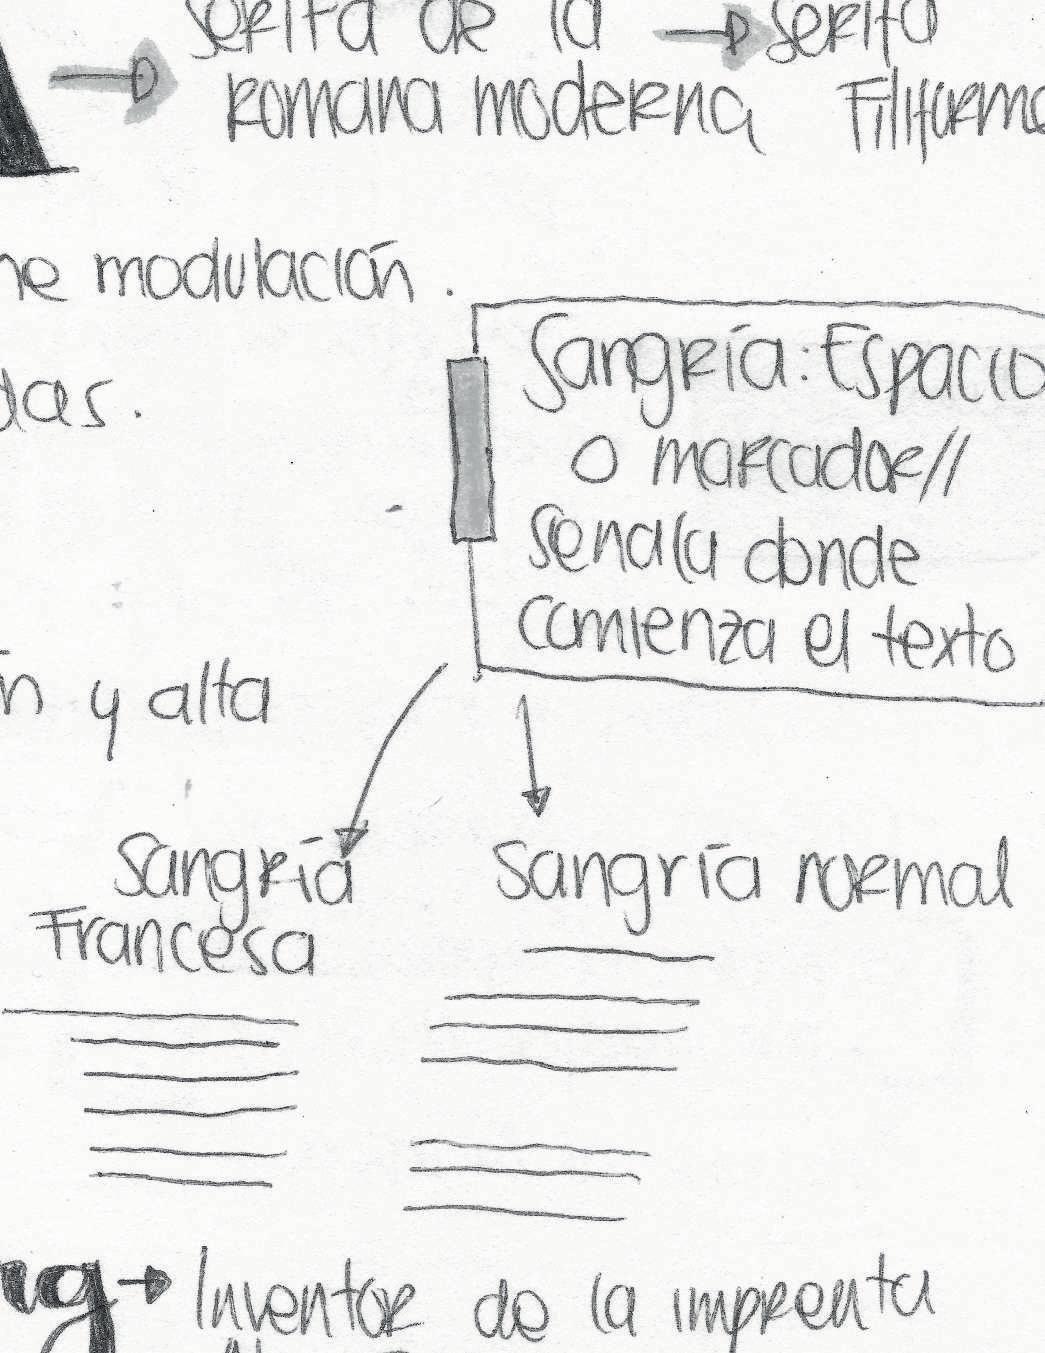 serifa de la
serifa
romana moderna
Filiforme
ne modulación.
das.
Sangría: Espacio
o marcador//
senala donde
comienza el texto
n y alta
Sangría
Francesa
Sangría normal
Inventor de la imprenta